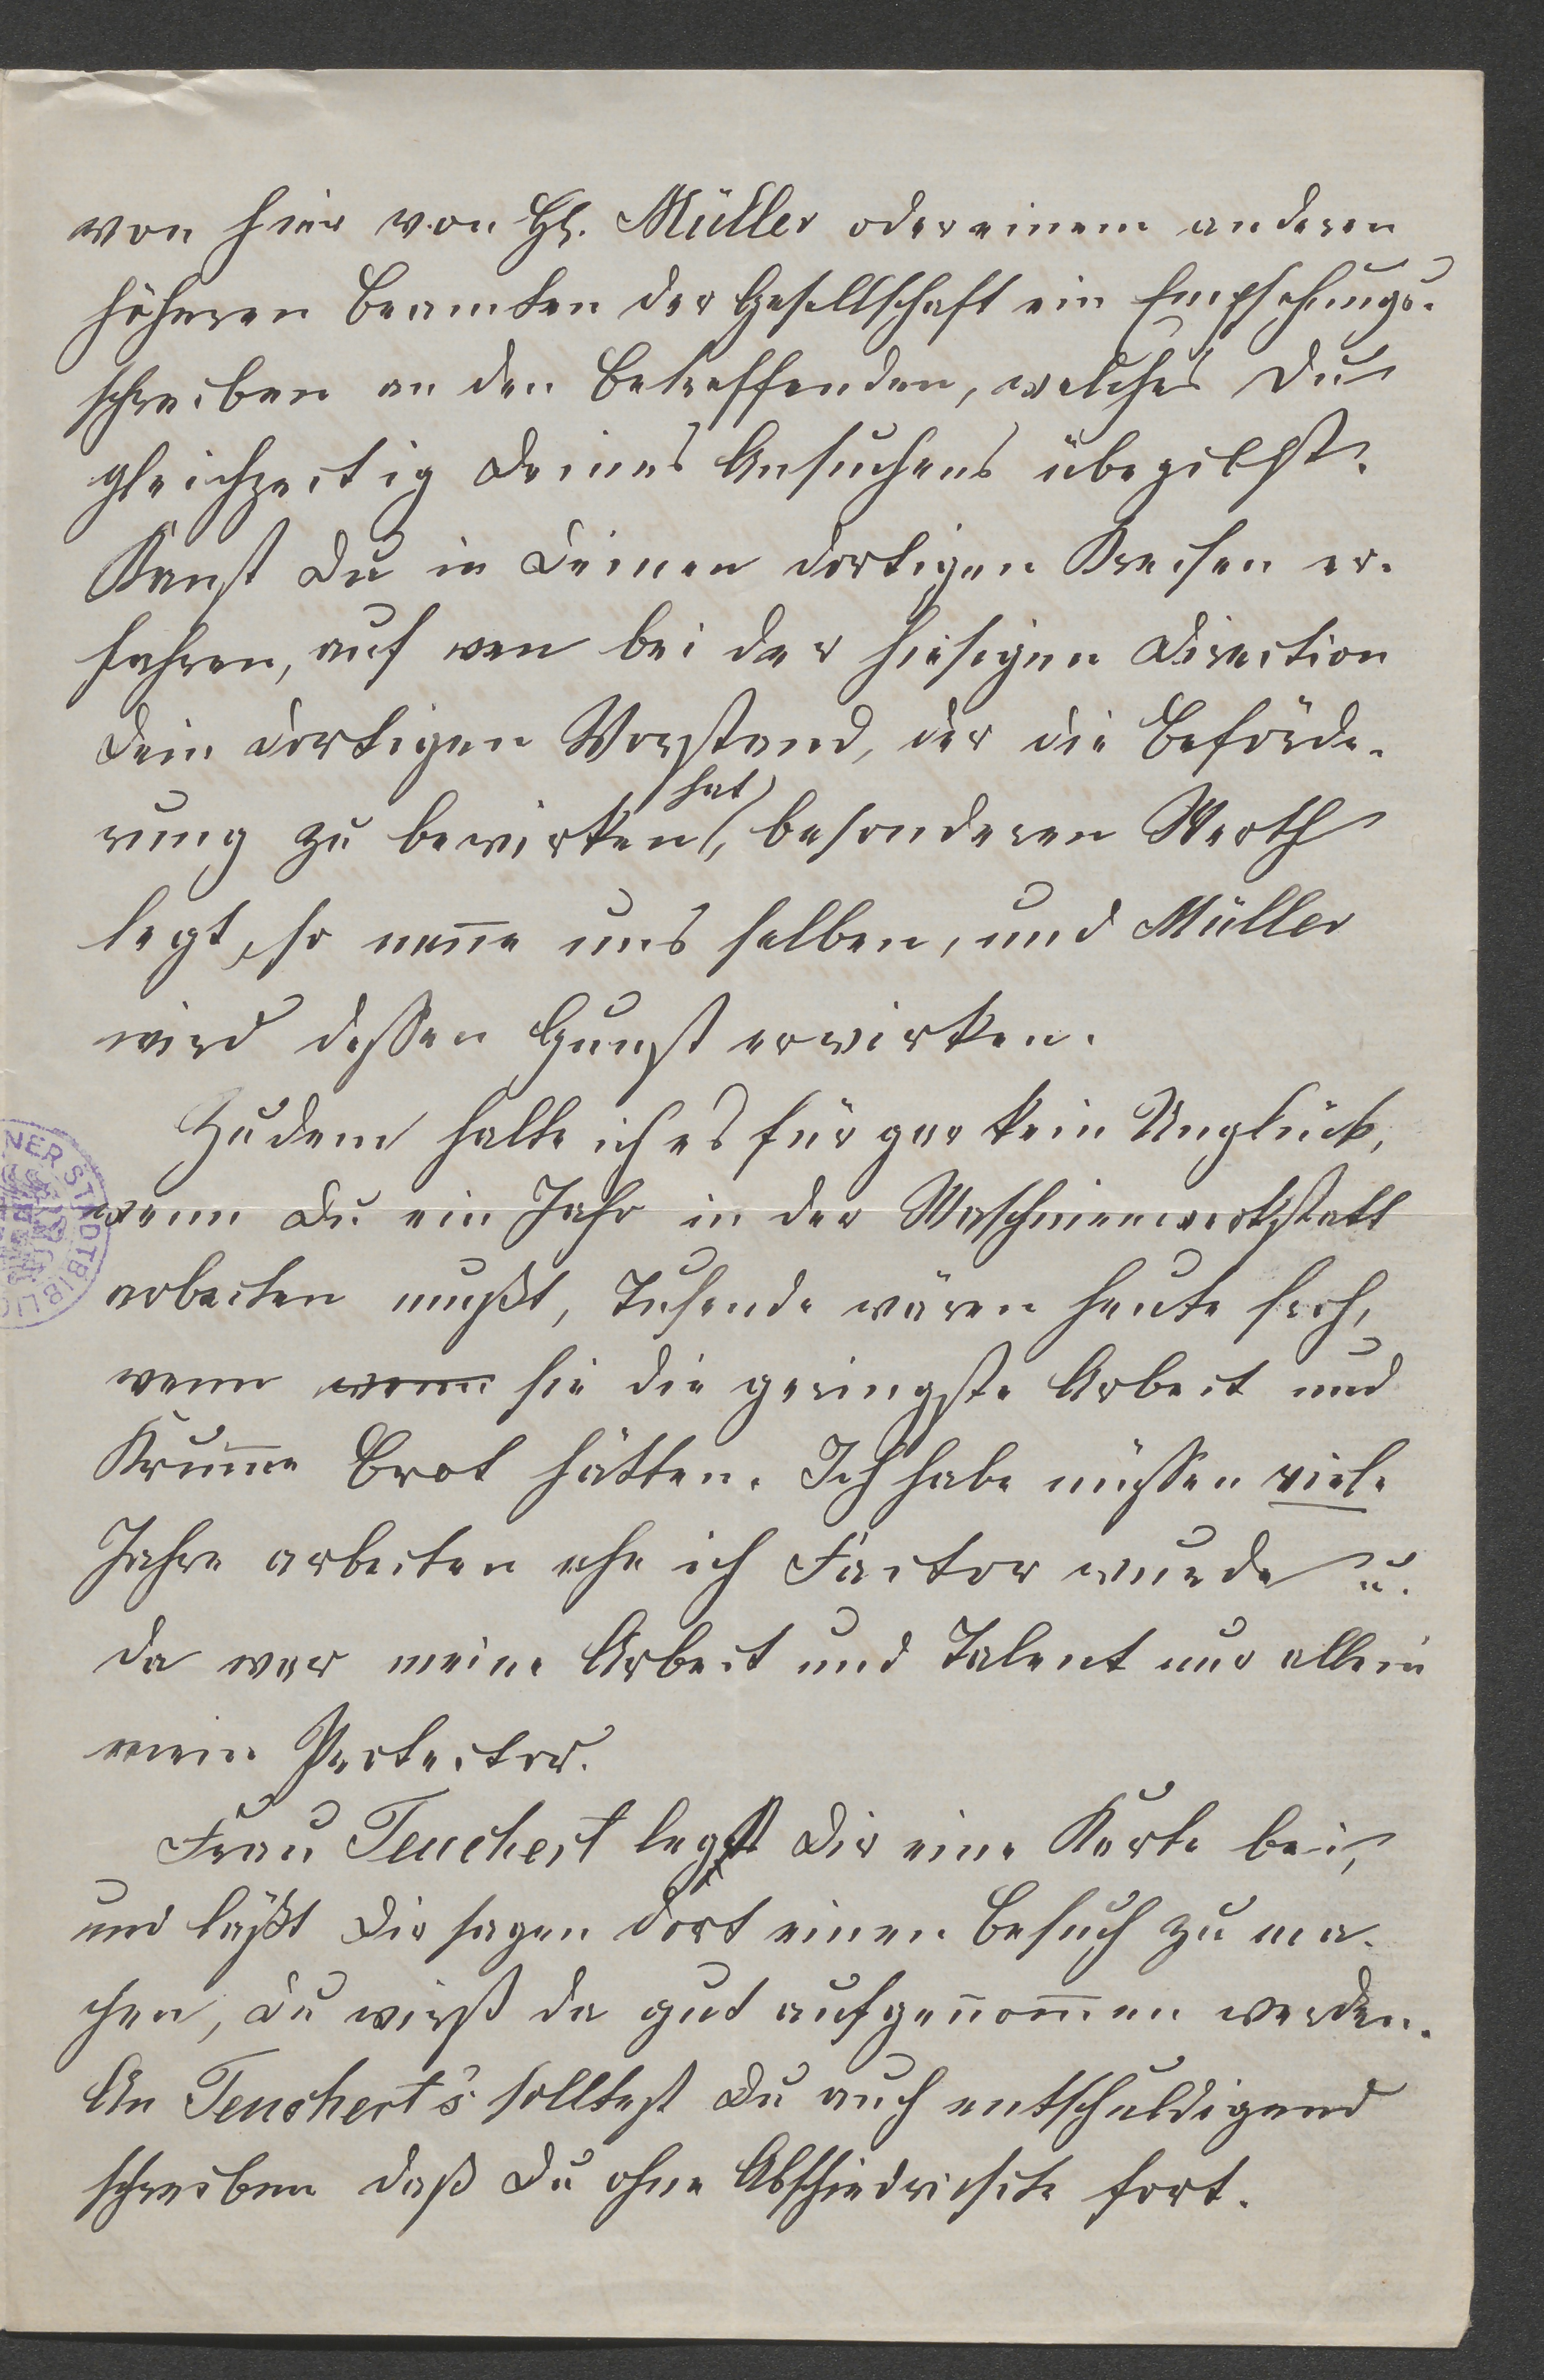 von hier von H. Müller oder einem anderen
höheren Beamten der Gesellschaft ein Empfehungs-
schreiben an den Betreffenden, welches Du
gleichzeitig Deines Ansuchens übegibst.
Kanst Du in Deinen dortigen Kreisen er-
fahren, auf wen bei der hiesigen Direction
Dein dortigen Vorstand, der die Beförde-
rung zu bewirken hat, besonderen Werth
legt, so nen̅e uns selben, und Müller
wird dessen Gunst erwirken.
Zudem halte ich es für gar kein Unglück,
wenn Du ein Jahr in der Maschinenwerkstatt
arbeiten mußt, Tusende wären heute froh,
wenn wenn sie die geringste Arbeit und
Krum̅e Brot hätten. Ich habe müssen viele
Jahre arbeiten ehe ich Factor wurde u.
da war meine Arbeit und Talent nur allein
mein Protector.
Frau Teuchert legt Dir eine Karte bei,
und läßt Dir sagen dort einen Besuch zu ma-
chen, Du wirst da gut aufgenom̅en werden.
An Teuchert's solltest Du auch entschuldigend
schreiben daß Du ohne Abschiedvisite fort.
NER STADTBIBLIO